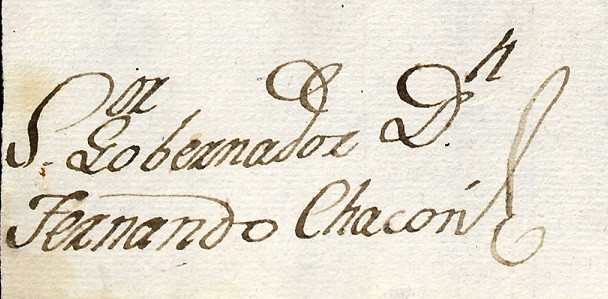 S.or Gobernador D.n
Fernando Chacón